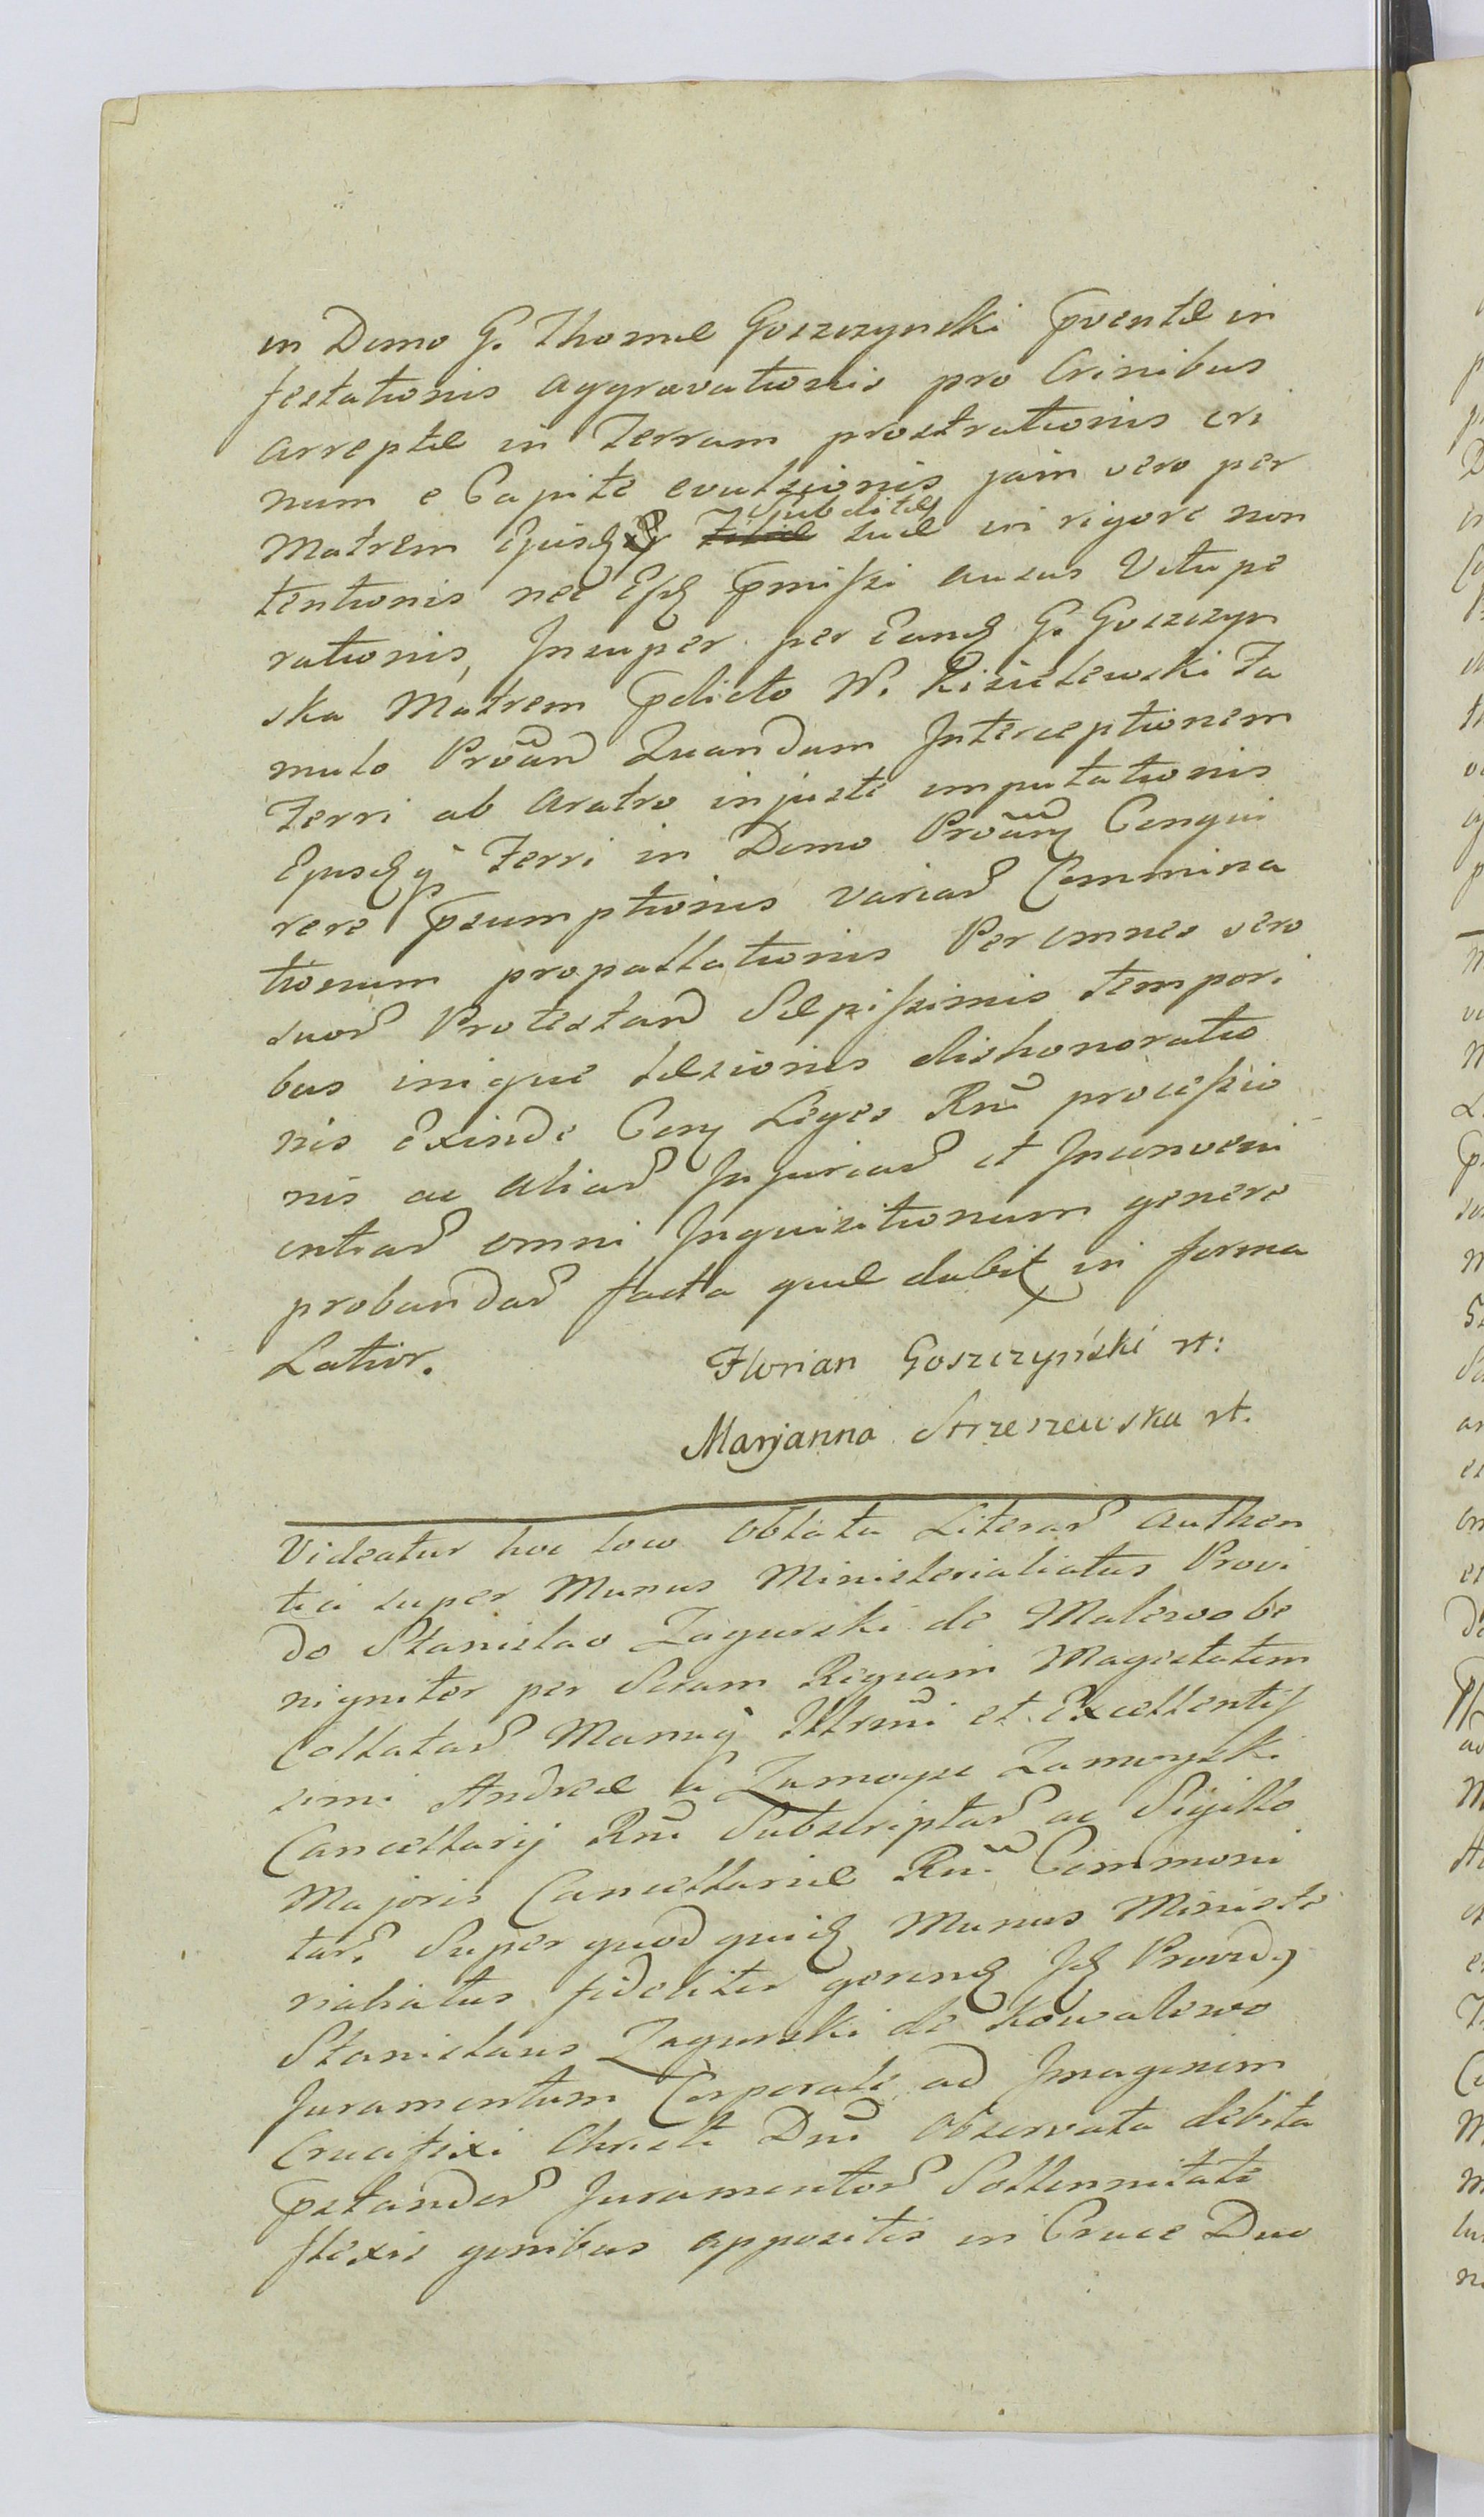 in Domo G. Thomæ Goszczynski Pventæ in
festationis aggravationis pro Crinibus
arreptæ in Terram prostrationis cri
num e Capite evulsionis jam vero per
Matrem Ejusdq Subditæ suæ in rigore non
tentionis nec Ejsd Pmissi ausus Vitupe
rationis, Insuper per Eand G. Goszczyn
ska Matrem Pdicto W. Kisielewski Fa
mulo Proban Quandam Interceptionem
Ferri ab aratro injuste imputationis
Ejusdq Ferri in Domo Proban Conqui
rere Psumptionis variar Commina
tionum propallationis Per omnes vero
suor Protestan Sæpissimis tempori
bus inique læsionis dishonoratio
nis Exinde Con Leges Rni processio
nis ac aliar Injuriar et Inconveni
entiar omni Inquisitionum genere
probandar facta quæ dabit in forma
Latior.
Florian Goszczyński rt:
Marjanna Strzeszewska rt.
Videatur hoc loco Oblata Literar Authen
tici super Munus Ministerialiatus Provi
do Stanislao Zagurski de Malewo be
nigniter per Scram Regiam Magistatem
Collatar Manuq Illrmi et Excellentis
simi Andreæ a Zamoysc Zamoyski
Cancellarij Rni Subscriptar ac Sigillo
Majoris Cancellariæ Rni Commoni
tar. Super quod quid Munus Ministe
rialiatus fideliter gerend Id Provids
Stanislaus Zagurski de Kowalewo
Juramentum Corporale ad Imaginem
Crucifixi Christi Dni Observata debita
Pstandor Juramentor Sollennitate
flexis genibus appositis in Cruce Duo